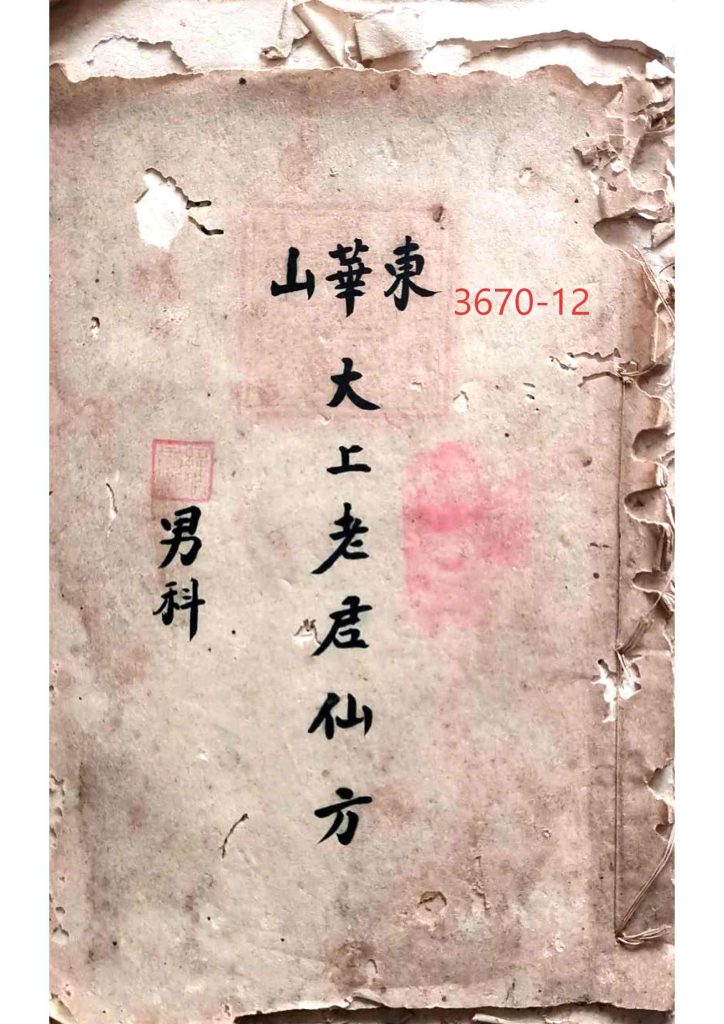 東華山
3670-12
大上老君仙方
男科